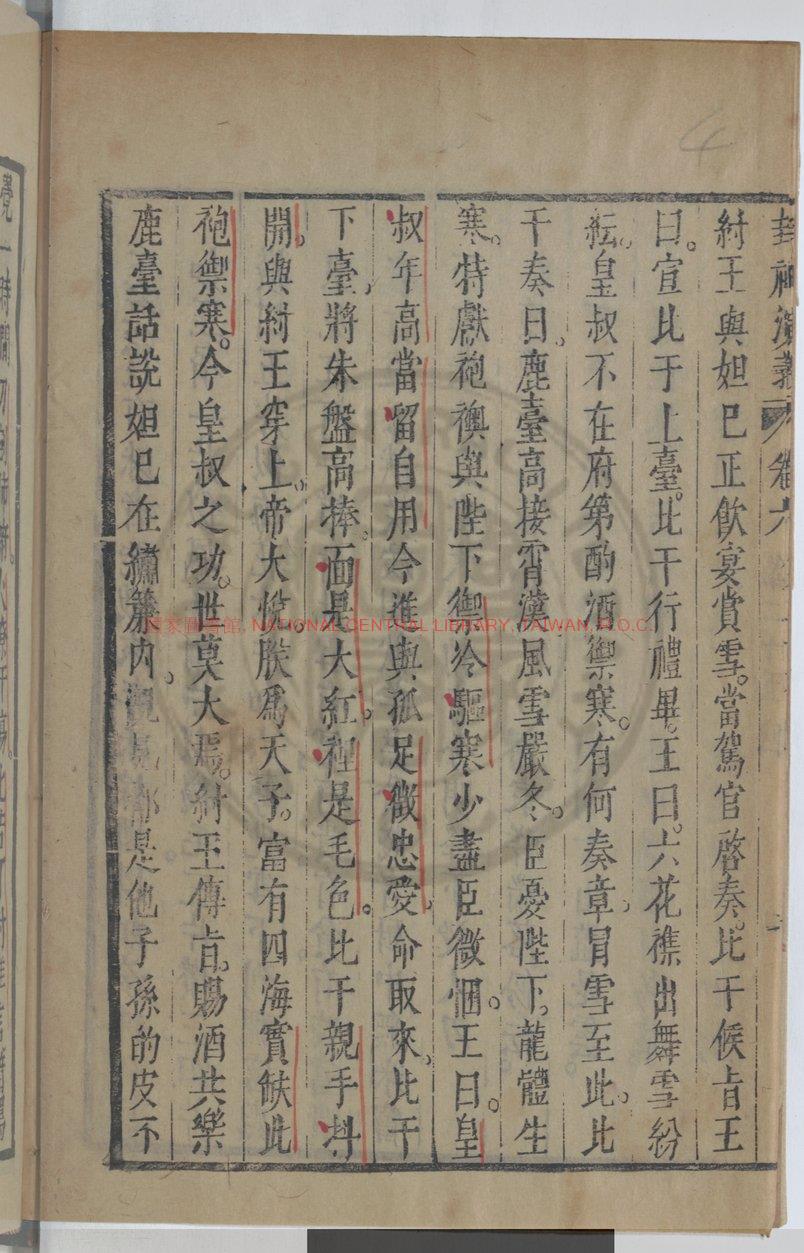 封神演義 卷六
紂王與妲己正飲宴賞雪。當駕官啓奏。比干候旨王
曰。宣比干上臺。比干行禮畢。王曰。六花襍出舞雪紛
紜。皇叔不在府第酌酒禦寒。有何奏章。冒雪至此。比
干奏曰。鹿臺高接霄漢風雪嚴冬。臣憂陛下。龍體生
寒。特獻袍襖與陛下禦冷驅寒少盡臣微悃。王曰。皇
叔年高當留自用今進與孤足徵忠愛。命取來。比干
下臺。將朱盤高捧。面是大紅。裡是毛色。比干親手抖
開。與紂王穿上。帝大悅。朕爲天子。富有四海實缺此
袍禦寒。今皇叔之功。世莫大焉。紂王傳旨。賜酒共樂
鹿臺話說妲己在繡簾內。觀見都是他子孫的皮不
國家圖書館, NATIONAL CENTRAL LIBRARY, TAIWAN, R.O.C.